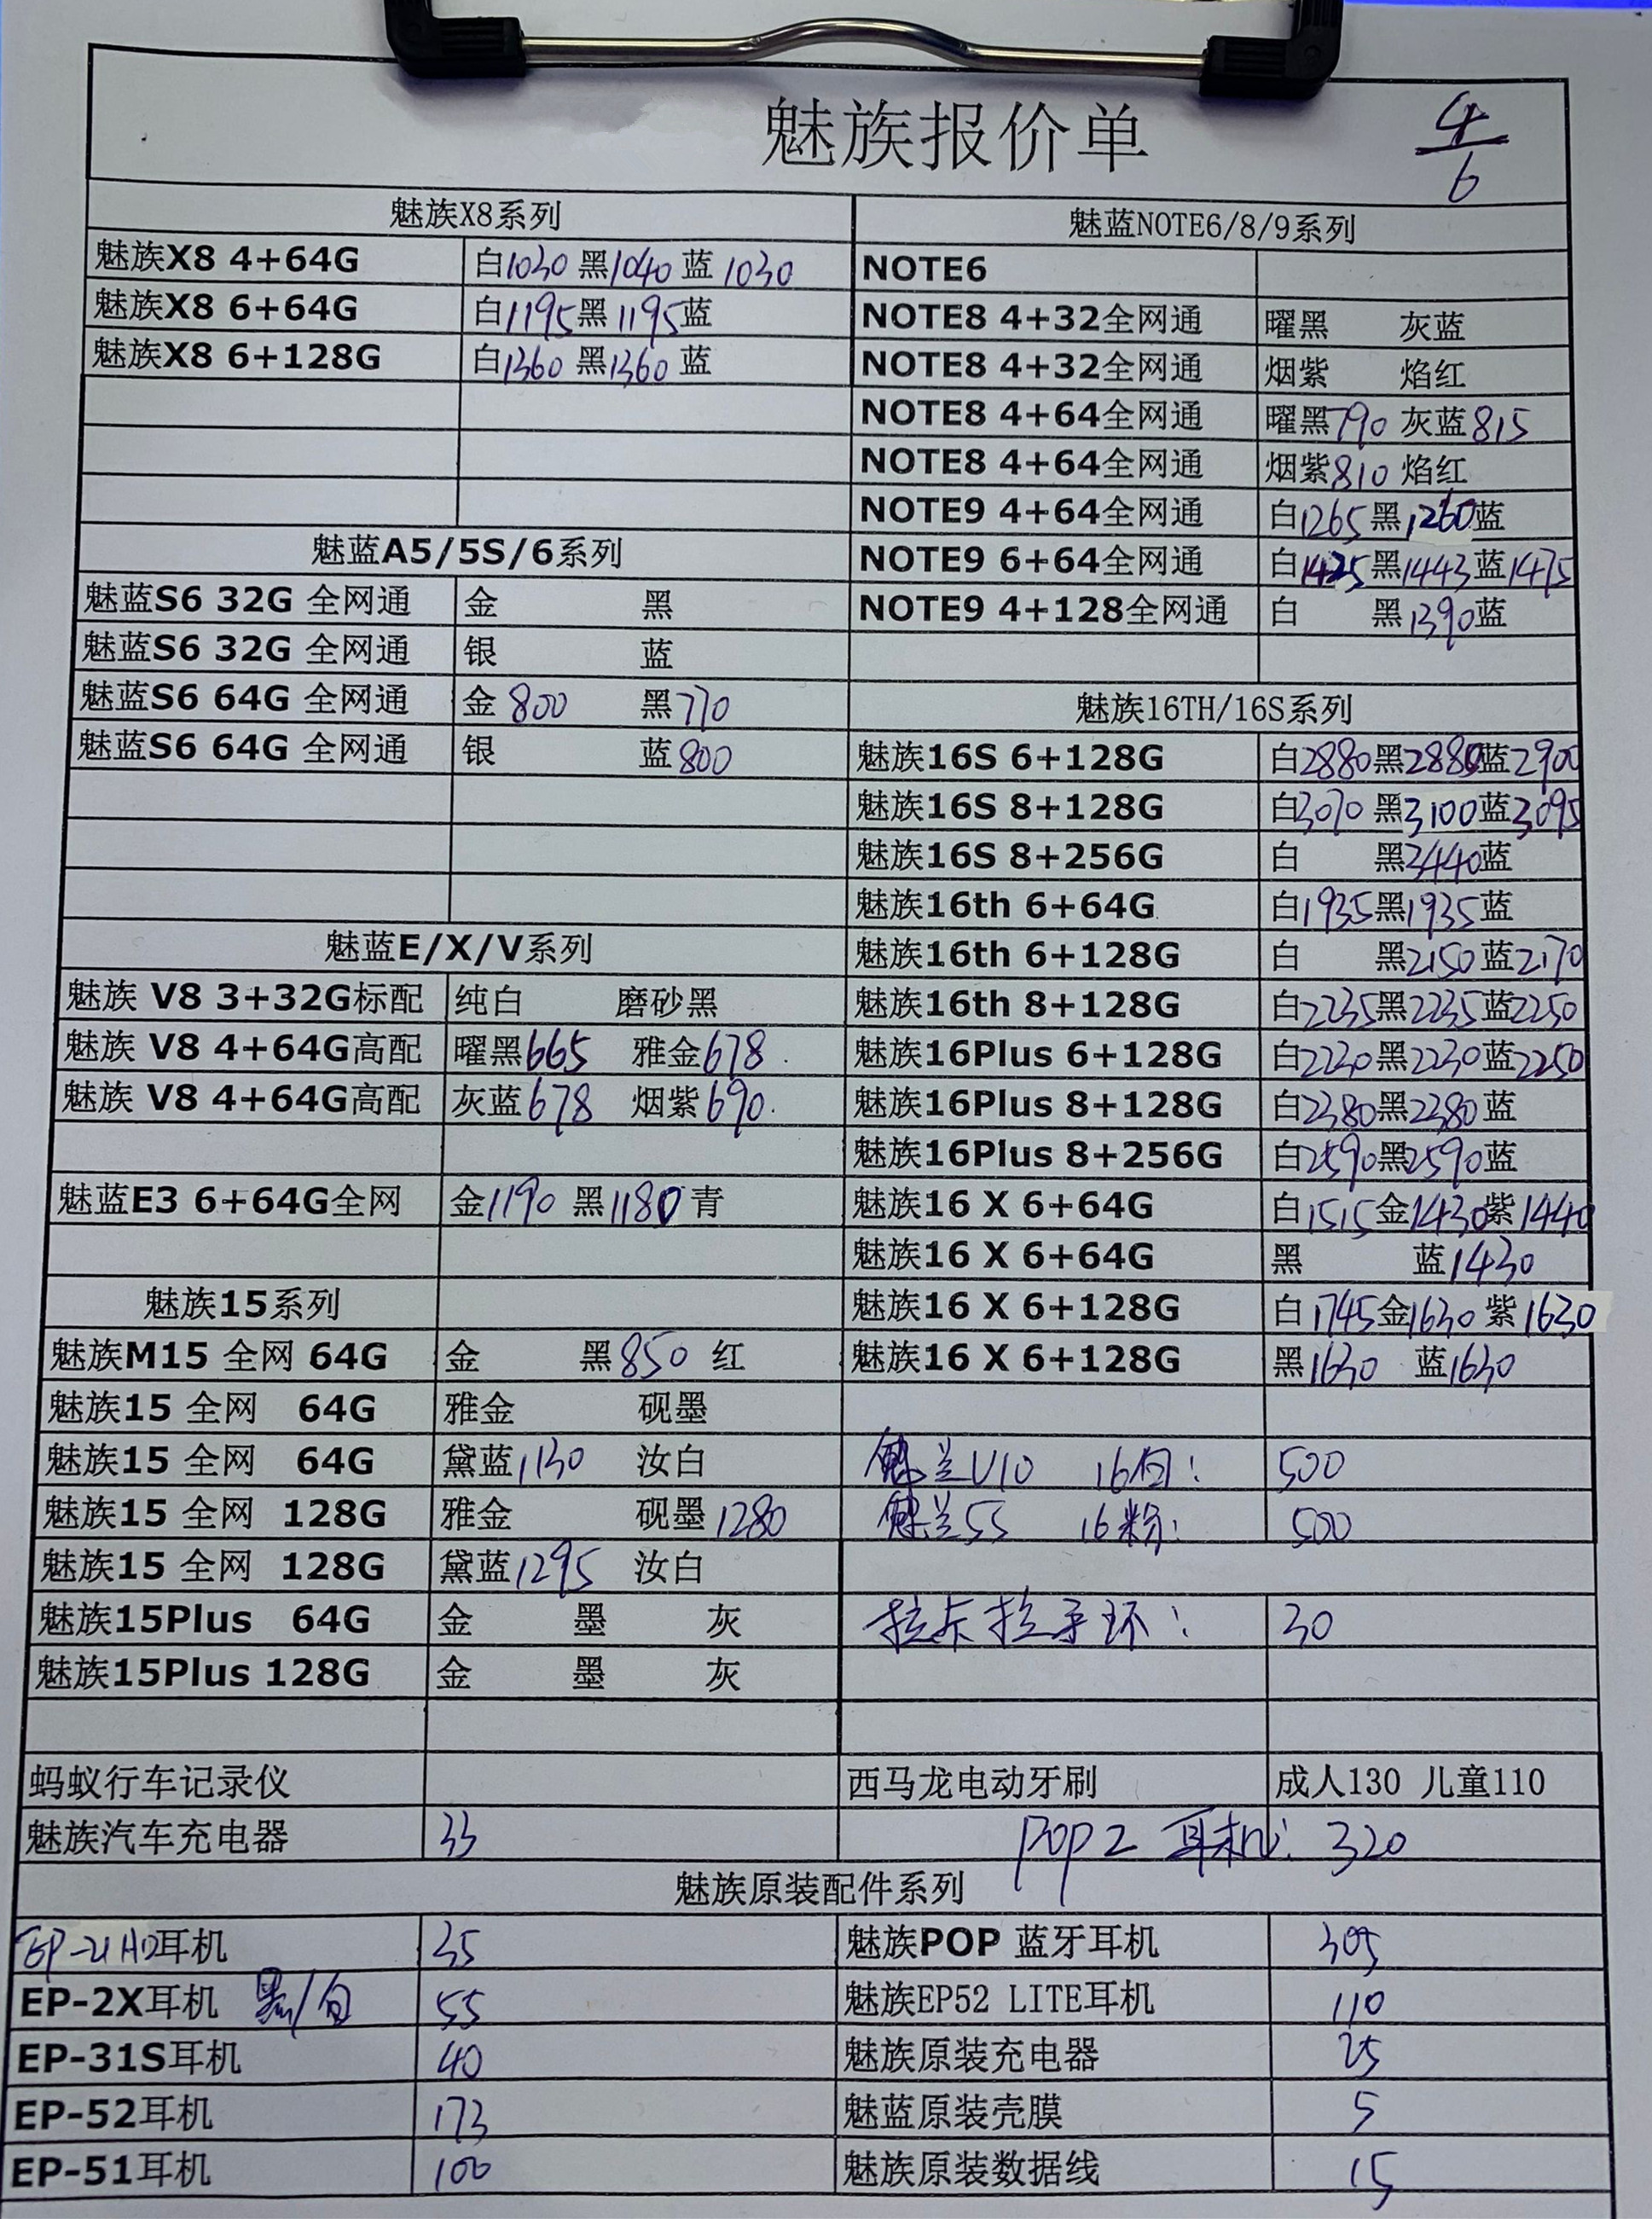 魅族报价单
4/6
魅族X8系列
魅族X8 4+64G 白1030 黑1040 蓝1030
魅族X8 6+64G 白1195 黑1195 蓝
魅族X8 6+128G 白1360 黑1360 蓝
魅蓝A5/5S/6系列
魅蓝S6 32G 全网通 金 黑
魅蓝S6 32G 全网通 银 蓝
魅蓝S6 64G 全网通 金800 黑770
魅蓝S6 64G 全网通 银 蓝800
魅蓝E/X/V系列
魅族 V8 3+32G标配 纯白 磨砂黑
魅族 V8 4+64G高配 曜黑665 雅金678
魅族 V8 4+64G高配 灰蓝678 烟紫690
魅蓝E3 6+64G全网 金1190 黑1180 青
魅族15系列
魅族M15 全网 64G 金 黑850 红
魅族15 全网 64G 雅金 砚墨
魅族15 全网 64G 黛蓝1130 汝白
魅族15 全网 128G 雅金 砚墨1280
魅族15 全网 128G 黛蓝1295 汝白
魅族15Plus 64G 金 墨 灰
魅族15Plus 128G 金 墨 灰
魅蓝NOTE6/8/9系列
NOTE6
NOTE8 4+32全网通 曜黑 灰蓝
NOTE8 4+32全网通 烟紫 焰红
NOTE8 4+64全网通 曜黑790 灰蓝815
NOTE8 4+64全网通 烟紫810 焰红
NOTE9 4+64全网通 白1265 黑1260 蓝
NOTE9 6+64全网通 白1425 黑1443 蓝1475
NOTE9 4+128全网通 白 黑1390 蓝
魅族16TH/16S系列
魅族16S 6+128G 白2880 黑2880 蓝2900
魅族16S 8+128G 白3070 黑3100 蓝3095
魅族16S 8+256G 白 黑3440 蓝
魅族16th 6+64G 白1935 黑1935 蓝
魅族16th 6+128G 白 黑2150 蓝2170
魅族16th 8+128G 白2235 黑2235 蓝2250
魅族16Plus 6+128G 白2230 黑2230 蓝2250
魅族16Plus 8+128G 白2380 黑2380 蓝
魅族16Plus 8+256G 白2590 黑2590 蓝
魅族16 X 6+64G 白1515 金1430 紫1440
魅族16 X 6+64G 黑 蓝1430
魅族16 X 6+128G 白1745 金1630 紫1630
魅族16 X 6+128G 黑1630 蓝1630
魅兰U10 16白: 500
魅兰5S 16粉: 500
拉卡拉手环: 30
蚂蚁行车记录仪 西马龙电动牙刷 成人130 儿童110
魅族汽车充电器 33 pop2 耳机: 320
魅族原装配件系列
EP-21HD耳机 35 魅族POP 蓝牙耳机 305
EP-2X耳机 黑/白 55 魅族EP52 LITE耳机 110
EP-31S耳机 40 魅族原装充电器 25
EP-52耳机 173 魅蓝原装壳膜 5
EP-51耳机 100 魅族原装数据线 15